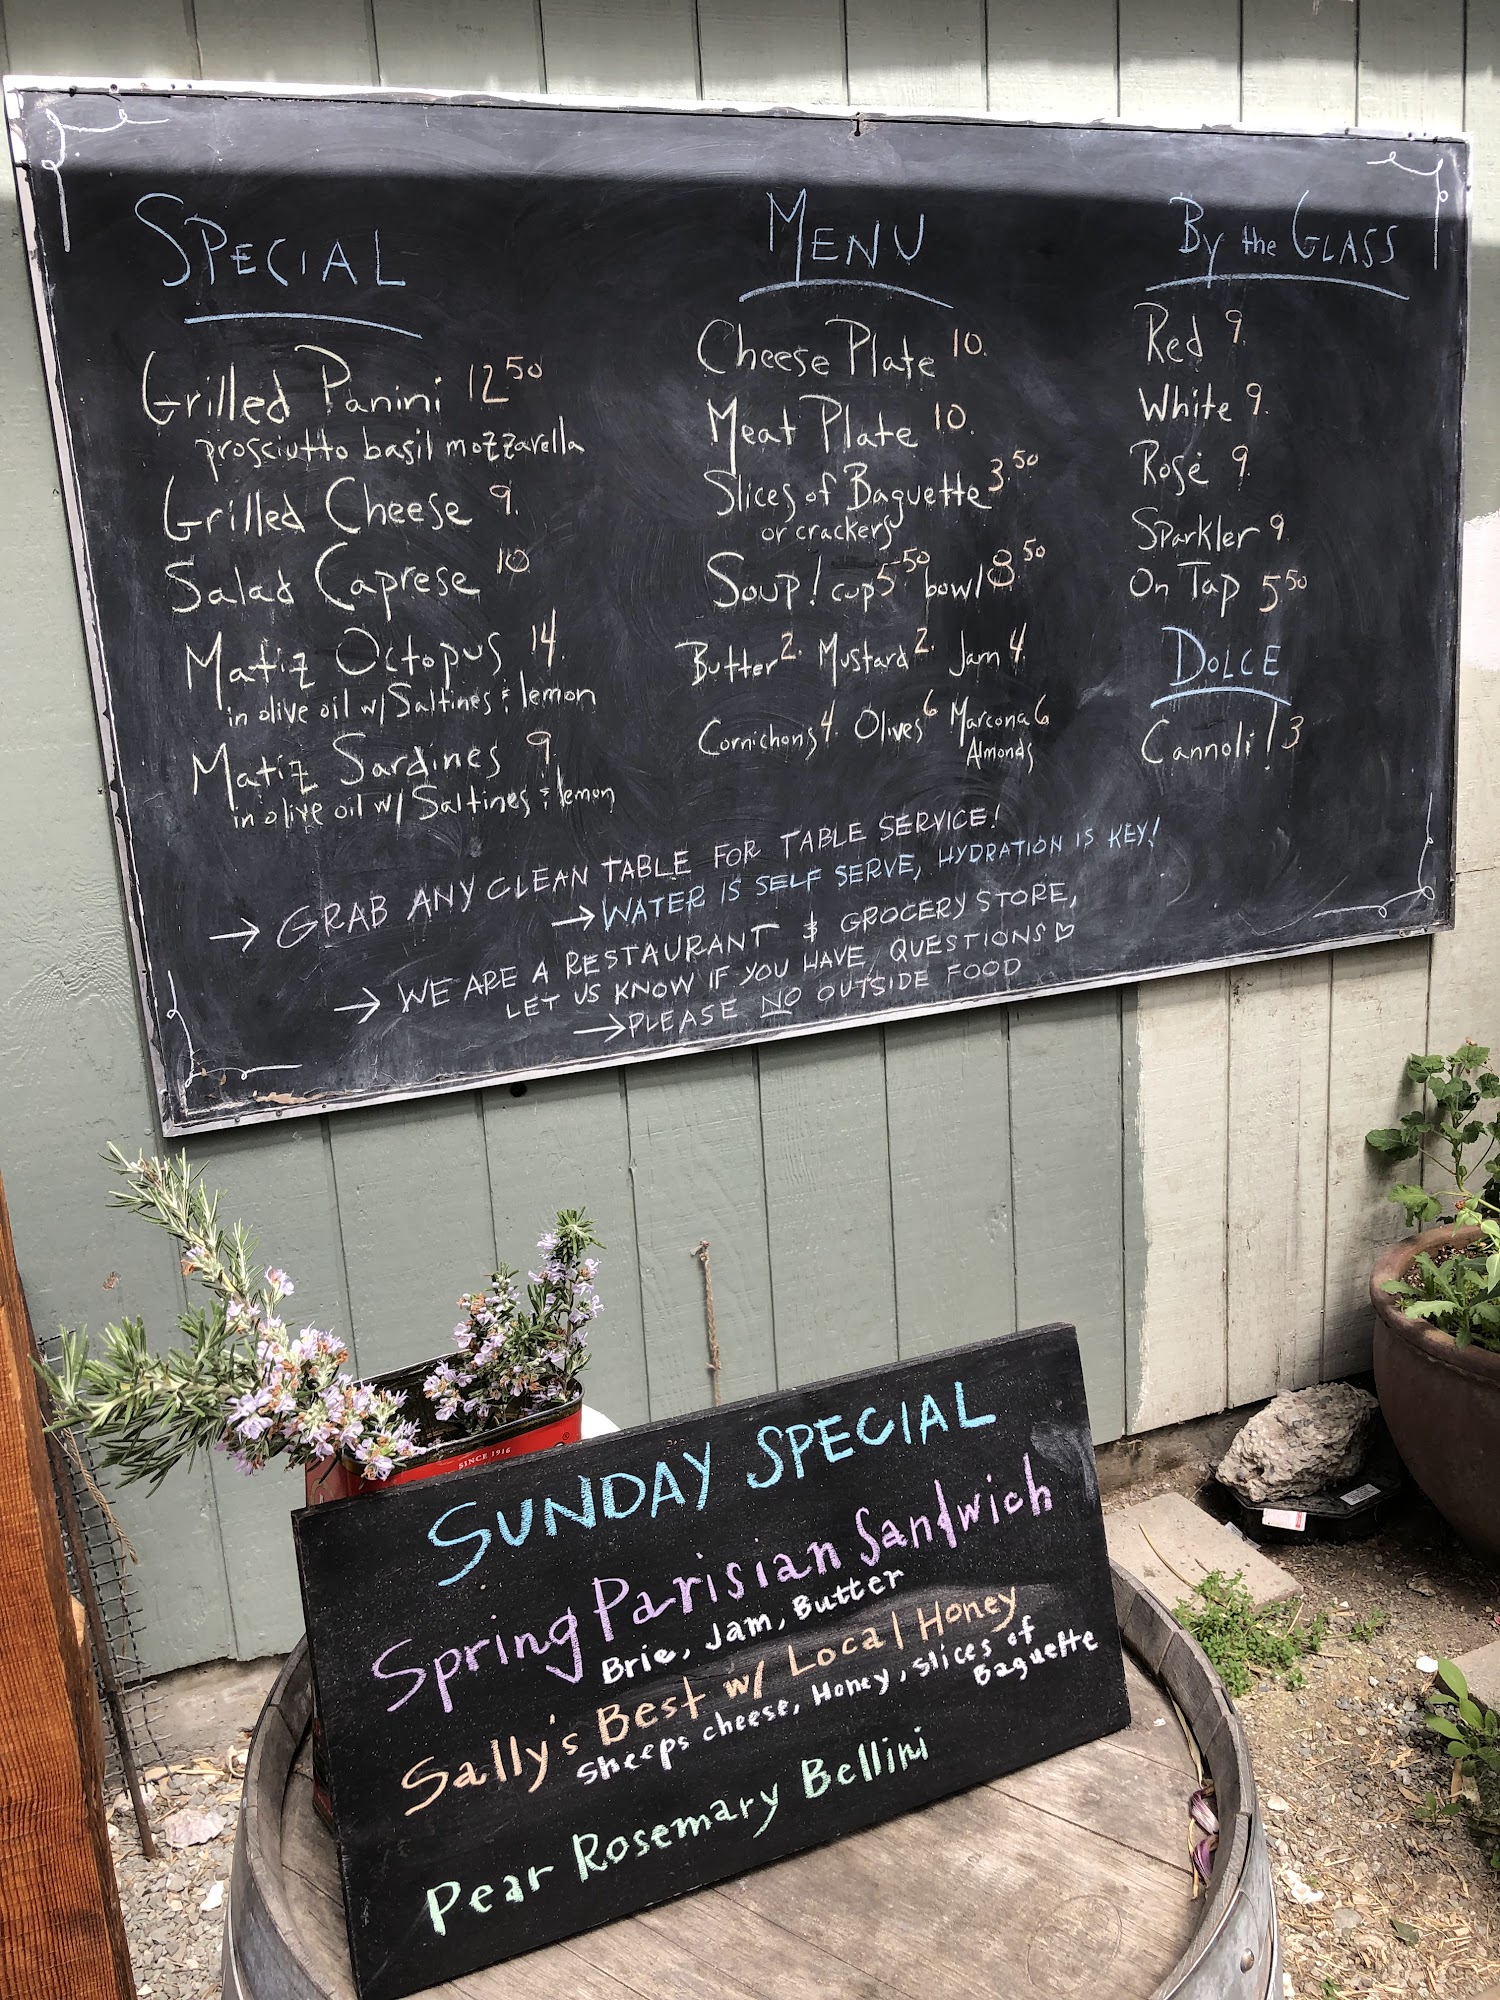 SPECIAL
Grilled Panini 12 50
prosciutto basil mozzarella
Grilled Cheese 9.
Salad Caprese 10.
Matiz Octopus 14.
in olive oil w/ Saltines & lemon
Matiz Sardines 9.
in olive oil w/ Saltines & lemon
MENU
Cheese Plate 10.
Meat Plate 10.
Slices of Baguette 3.50
or crackers
Soup! cup 5.50 bowl 8.50
Butter 2. Mustard 2. Jam 4.
Cornichons 4. Olives 6 Marcona 6
Almonds
By the GLASS
Red 9.
White 9.
Rosé 9.
Sparkler 9.
On Tap 5 50
DOLCE
Cannoli! 3
→ GRAB ANY CLEAN TABLE FOR TABLE SERVICE!
→ WATER IS SELF SERVE, HYDRATION IS KEY!
→ WE ARE A RESTAURANT & GROCERY STORE,
LET US KNOW IF YOU HAVE QUESTIONS ♡
→ PLEASE NO OUTSIDE FOOD
SINCE 1916
SUNDAY SPECIAL
Spring Parisian Sandwich
Brie, Jam, Butter
Sally's Best w/ Local Honey
Sheeps cheese, Honey, Slices of
Baguette
Pear Rosemary Bellini